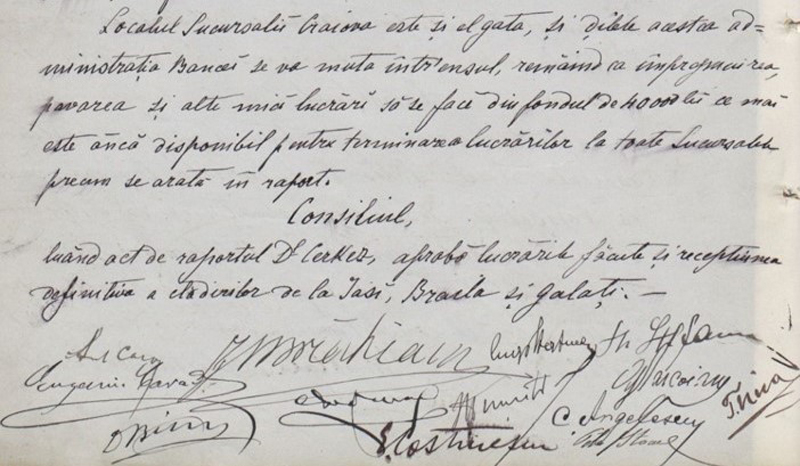 Localul Sucursalii Craiova este și el gata, și dilele acestea ad=
ministrația Bancei se va muta într'ensul, remâind ca împrejmuirea,
pavarea și alte mici lucrări să se facă din fondul de 40000 lei ce mai
este âncă disponibil pentru terminarea lucrărilor la toate Sucursalele
precum se arată în raport.
Consiliul,
luând act de raportul Dl Cerkez, aprobă lucrările făcute și recepțiunea
definitiva a clădirilor de la Iași, Braila și Galați. —
Eugeniu
E. Costinescu
C. Angelescu